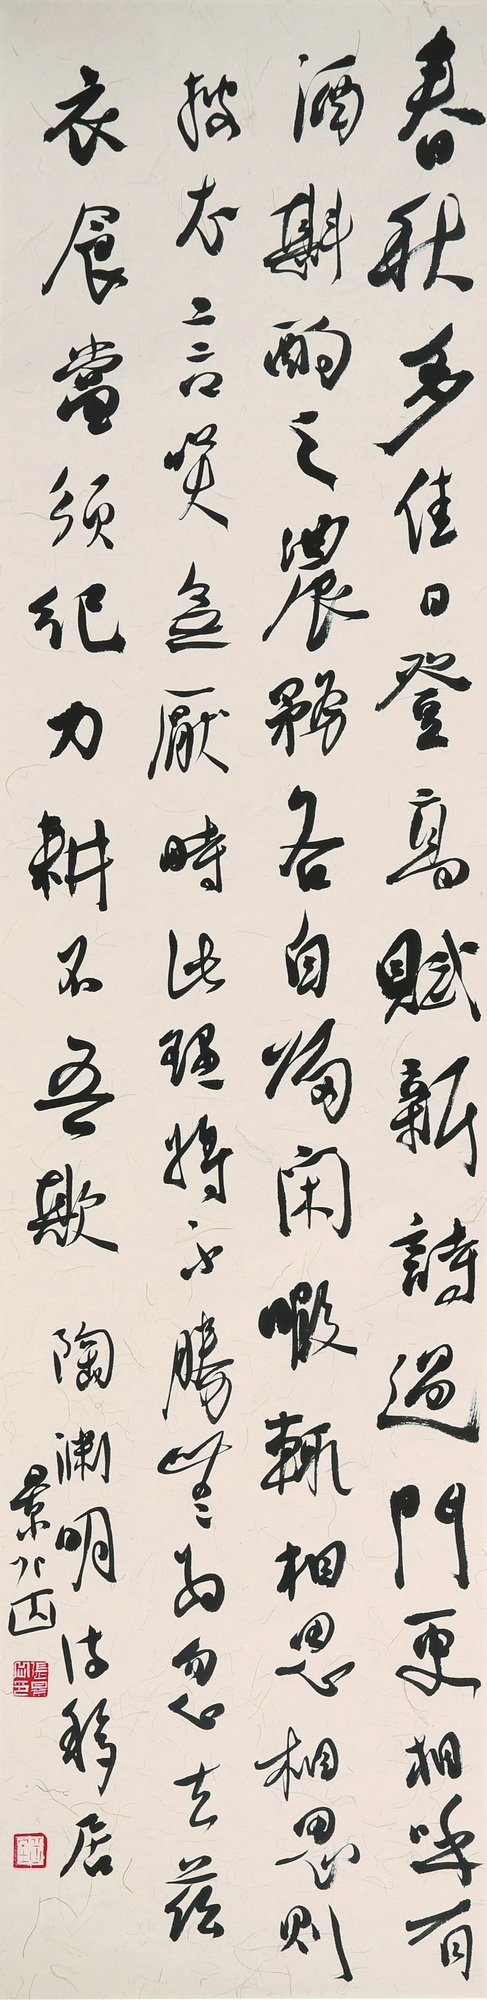 春秋多佳日登高賦新詩過門更相呼有
酒斟酌之農務各自歸閑暇輒相思相思則
披衣言笑無厭時此理將不勝無為忽去茲
衣食當須紀力耕不吾欺 陶淵明詩移居
景